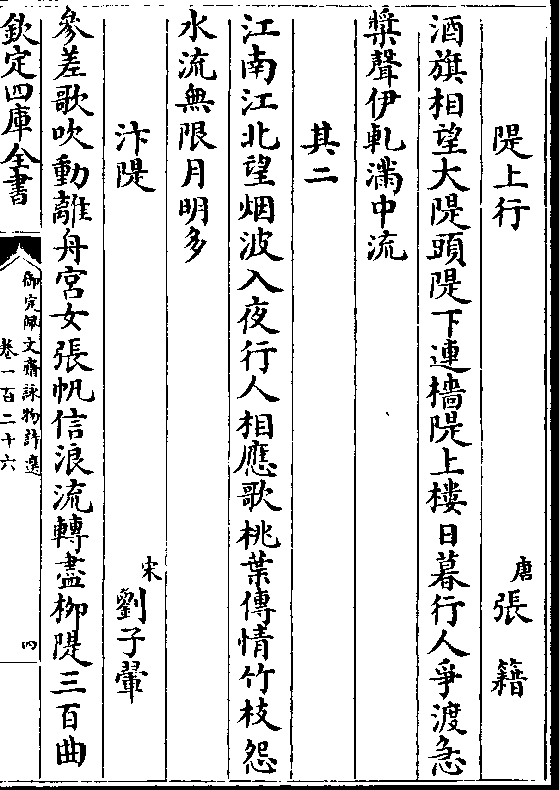 隄上行
唐張籍
酒旗相望大隄頭隄下連檣隄上樓日暮行人爭渡急
槳聲伊軋滿中流
其二
江南江北望烟波入夜行人相應歌桃葉傳情竹枝怨
水流無限月明多
汴隄
宋劉子翬
參差歌吹動離舟宮女張帆信浪流轉盡柳隄三百曲
欽定四庫全書
御定佩文齋詠物詩選
卷一百二十六
四